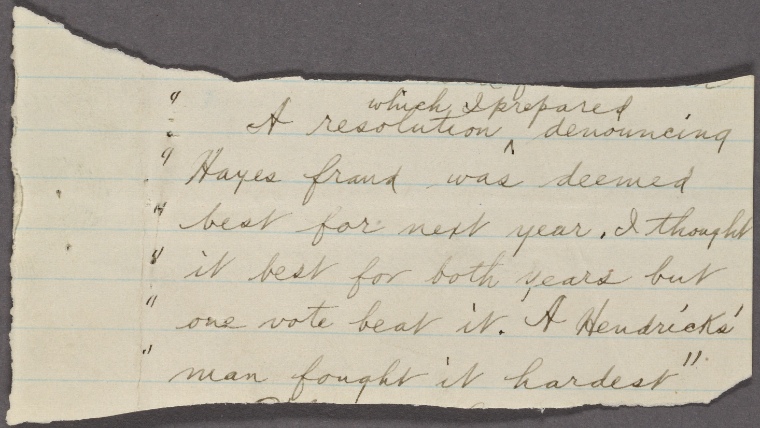 which I prepared
" A resolution ^ denouncing
" Hayes fraud was deemed
" best for next year. I thought
" it best for both years but
" one vote beat it. A Hendricks'
" man fought it hardest"